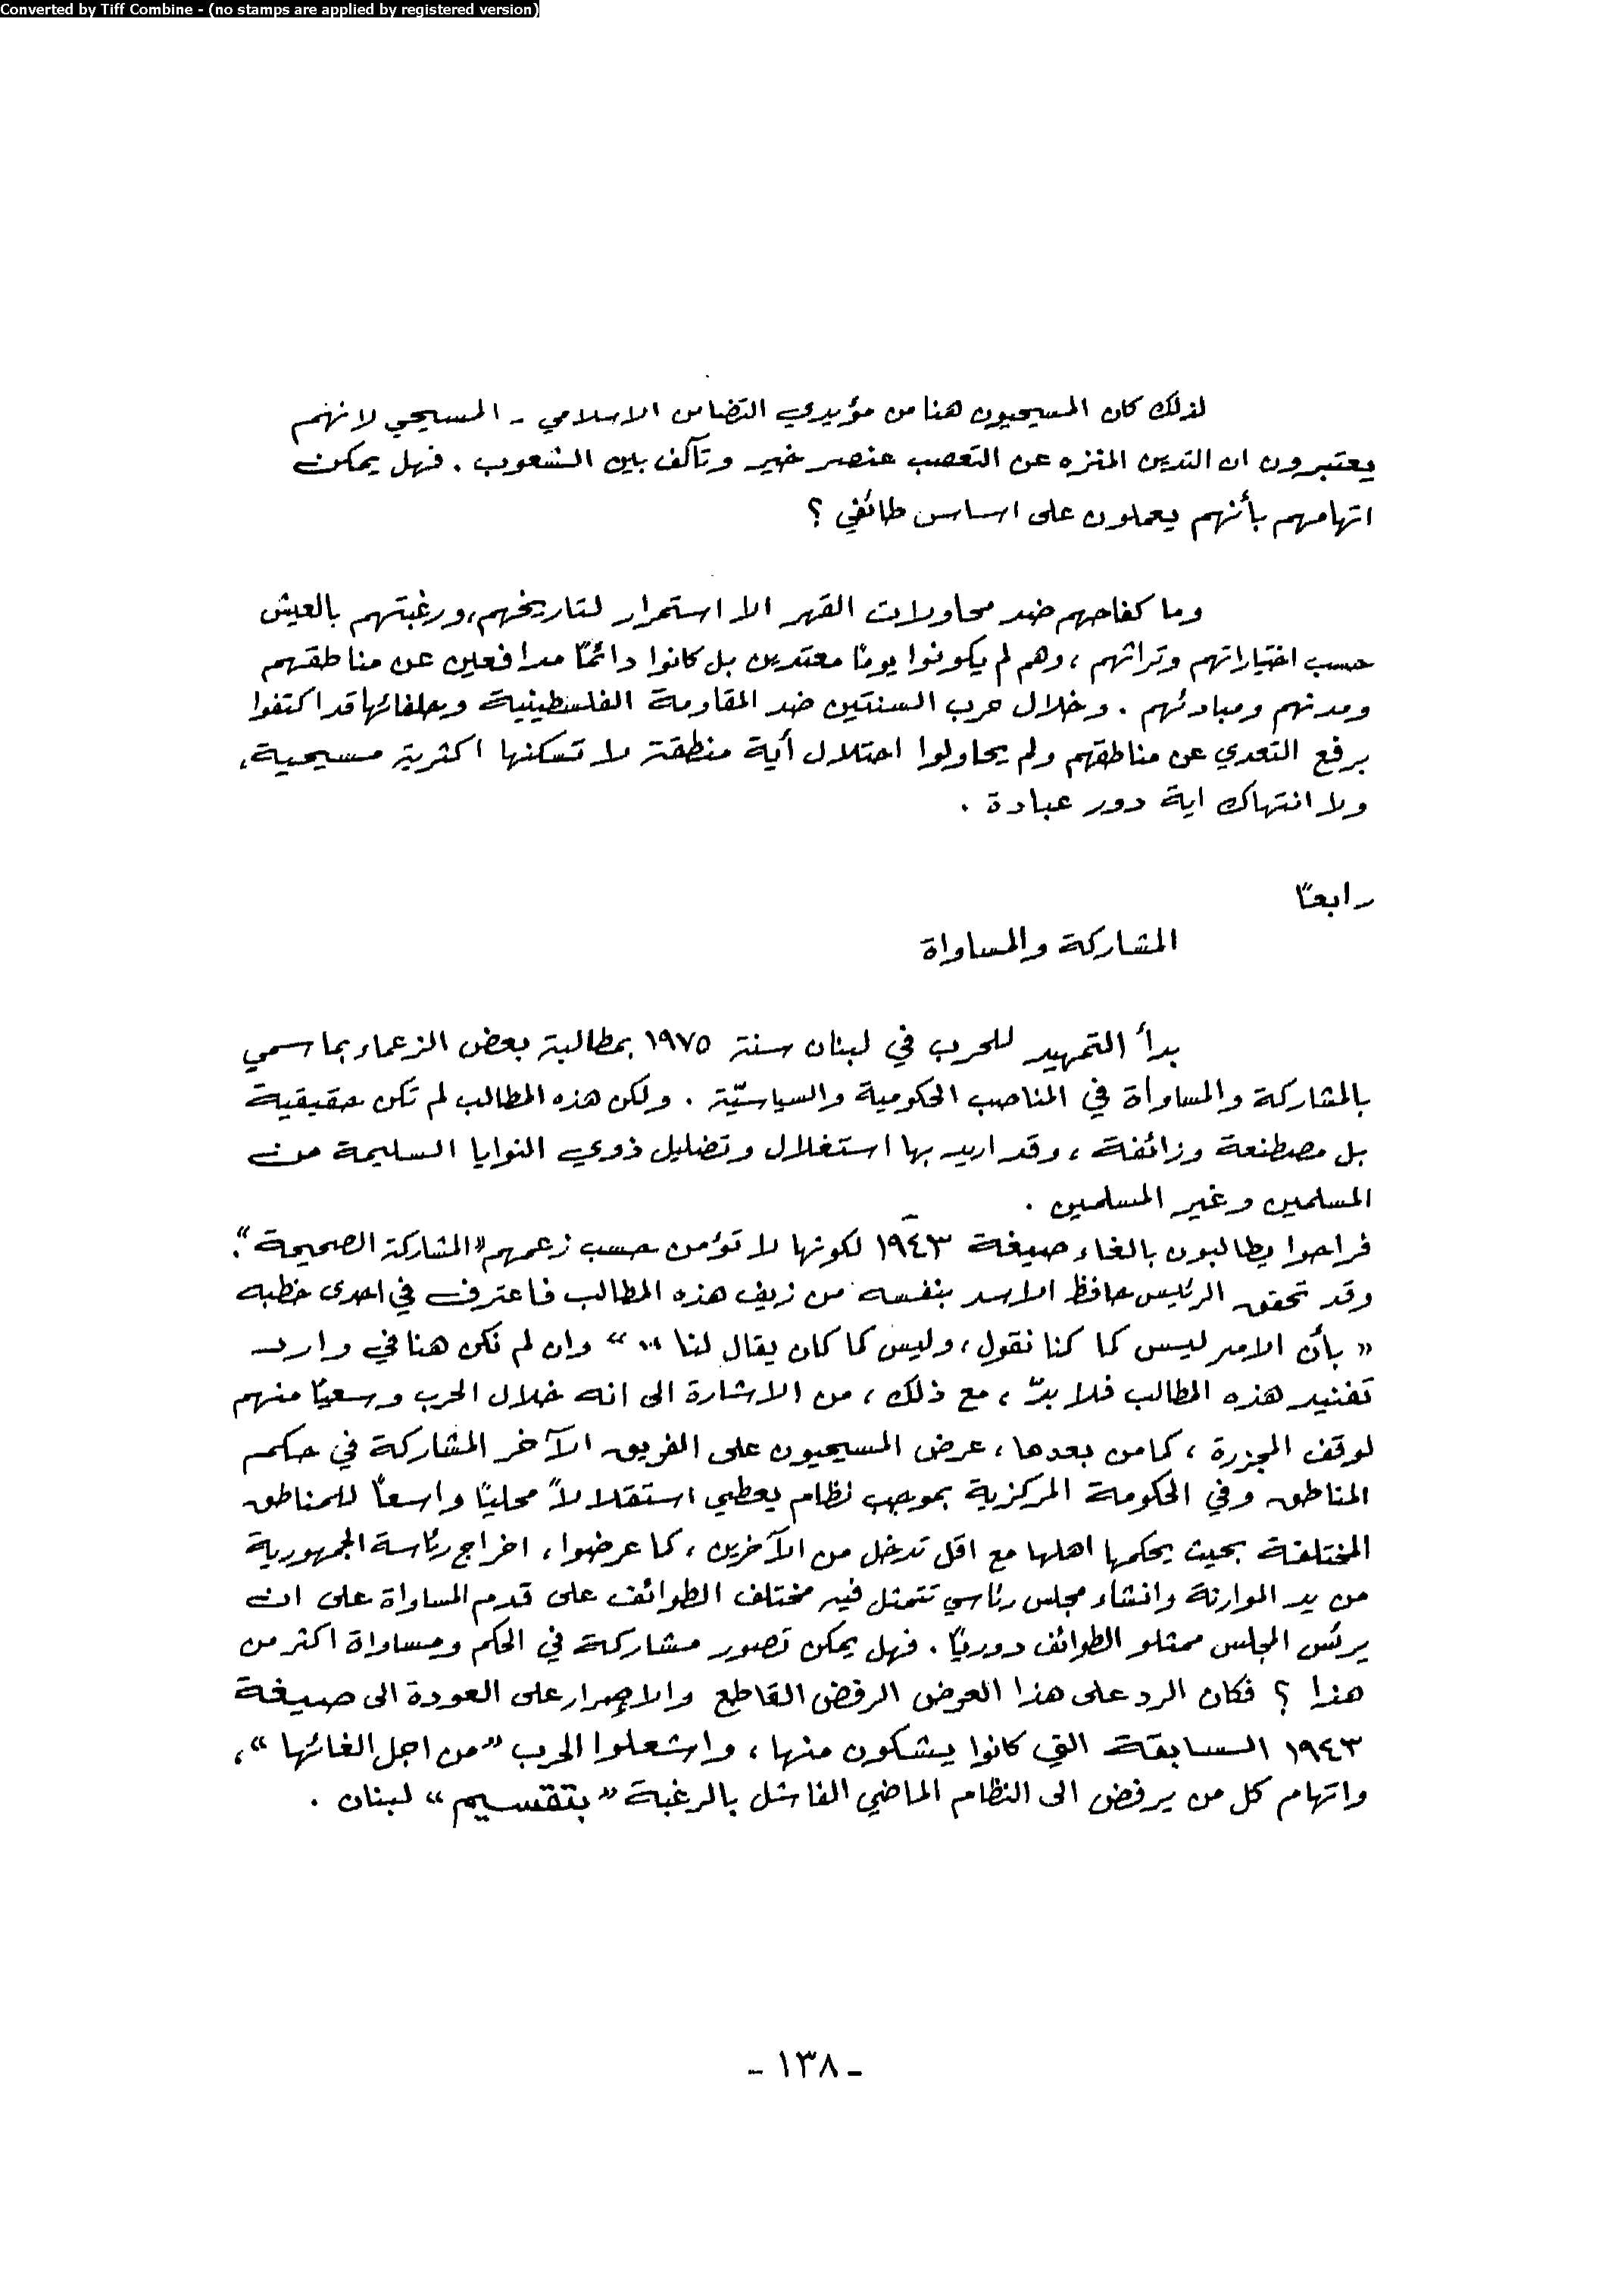 Converted by Tiff Combine - (no stamps are applied by registered version)
لذلك كان المسيحيون هنا من مؤيدي التضامن الاسلامي - المسيحي لانهم
يعتبرون ان التدين المنزه عن التعصب عنصر خير وتآلف بين الشعوب . فهل يمكن
اتهامهم بأنهم يعملون على اساس طائفي ؟
وما كفاحهم ضد محاولات القهر الا استمرار لتاريخهم، ورغبتهم بالعيش
حسب اختياراتهم وتراثهم ، وهم لم يكونوا يومًا معتدين بل كانوا دائمًا مدافعين عن مناطقهم
ومدنهم ومبادئهم . وخلال حرب السنتين ضد المقاومة الفلسطينية وحلفائها قد اكتفوا
برفع التعدي عن مناطقهم ولم يحاولوا احتلال أية منطقة لا تسكنها اكثرية مسيحية،
ولا انتهاك اية دور عبادة .
رابعًا
المشاركة والمساواة
بدأ التمهيد للحرب في لبنان سنة ١٩٧٥ بمطالبة بعض الزعماء بما سمي
بالمشاركة والمساوأة في المناصب الحكومية والسياسيّة . ولكن هذه المطالب لم تكن حقيقية
بل مصطنعة وزائفة ، وقد اريد بها استغلال وتضليل ذوي النوايا السليمة من
المسلمين وغير المسلمين .
فراحوا يطالبون بالغاء صيغة ١٩٤٣ لكونها لا تؤمن حسب زعمهم «المشاركة الصحيحة».
وقد تحقق الرئيس حافظ الاسد بنفسه من زيف هذه المطالب فاعترف في احدى خطبه
« بأن الامر ليس كما كنا نقول ، وليس كما كان يقال لنا ... » وان لم نكن هنا في وارد
تفنيد هذه المطالب فلا بدّ ، مع ذلك ، من الاشارة الى انه خلال الحرب وسعيًا منهم
لوقف المجزرة ، كما من بعدها ، عرض المسيحيون على الفريق الآخر المشاركة في حكم
المناطق وفي الحكومة المركزية بموجب نظام يعطي استقلالاً محليًا واسعًا للمناطق
المختلفة بحيث يحكمها اهلها مع اقل تدخل من الآخرين ، كما عرضوا ، اخراج رئاسة الجمهورية
من يد الموارنة وانشاء مجلس رئاسي تتمثل فيه مختلف الطوائف على قدم المساواة على ان
يرئس المجلس ممثلو الطوائف دوريًا . فهل يمكن تصور مشاركة في الحكم ومساواة اكثر من
هذا ؟ فكان الرد على هذا العرض الرفض القاطع والإصرار على العودة الى صيغة
١٩٤٣ السابقة التي كانوا يشكون منها ، واشعلوا الحرب «من اجل الغائها» ،
واتهام كل من يرفض الى النظام الماضي الفاشل بالرغبة «بتقسيم» لبنان .
- ١٣٨ -